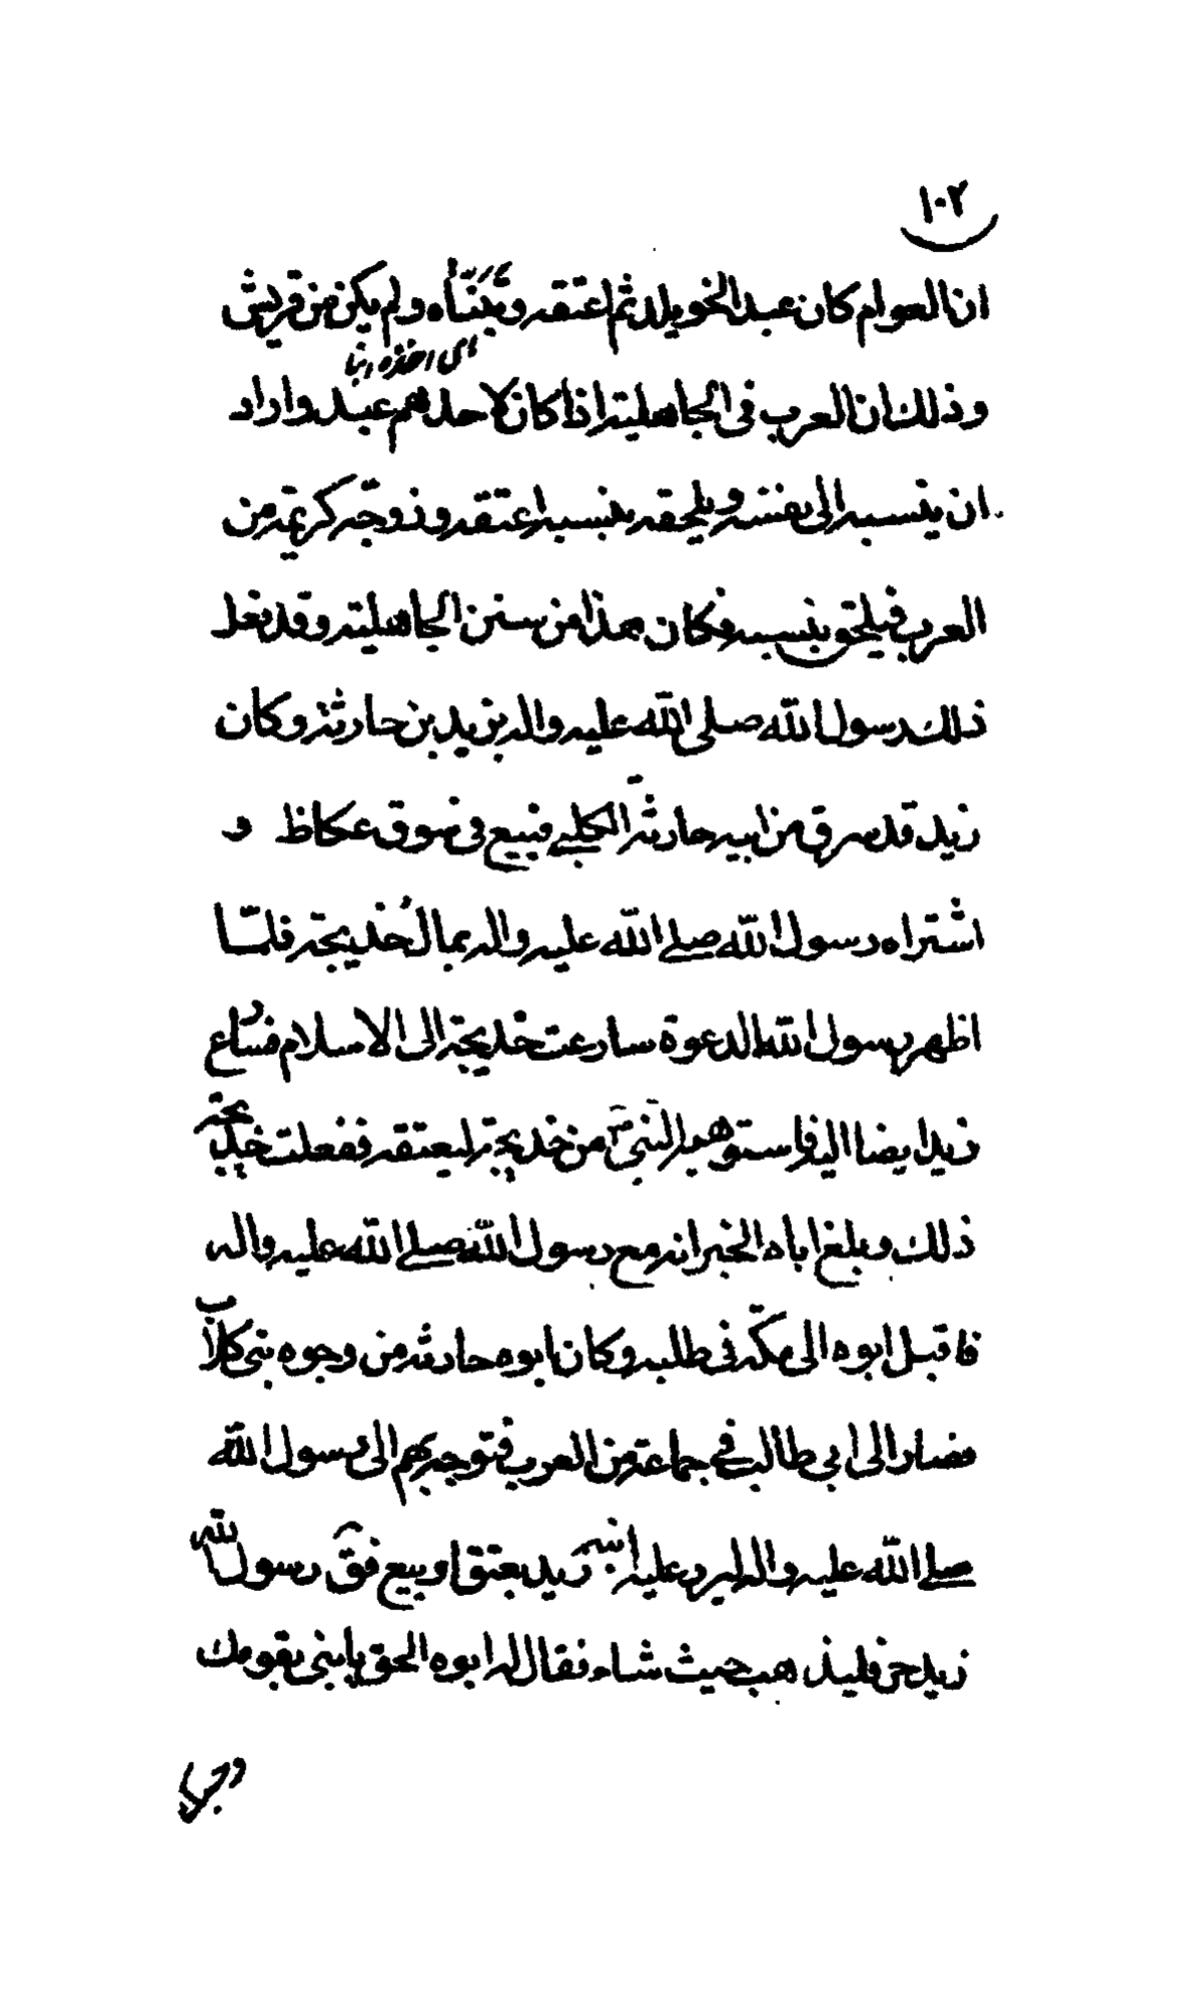 ١٠٢
ان العوام كان عبدا لخويلد ثم اعتقه وتبنّاه ولم يكن من قريش
اى اخذه ابنا
وذلك ان العرب فى الجاهلية اذا كان لاحدهم عبد واراد
ان ينسبه الى نفسه ويلحقه بنسبه اعتقه وزوّجه كريمة من
العرب فيلحق بنسبه فكان هذا من سنن الجاهلية وقد فعل
ذلك رسول الله صلى الله عليه واله بزيد بن حارثة وكان
زيد قد سرق من ابيه حارثة الكلبي فبيع فى سوق عكاظ و
اشتراه رسول الله صلى الله عليه واله بمال خُديجة فلمّا
اظهر رسول الله الدعوة سارعت خديجة الى الاسلام فسارع
زيد ايضا اليه فاستوهبه النبى ص من خديجة ليعتقه ففعلت خديجة
ذلك وبلغ اباه الخبر انه مع رسول الله صلى الله عليه واله
فاقبل ابوه الى مكّة فى طلبه وكان ابوه حارثة من وجوه بنى كلاب
فصار الى ابى طالب في جماعة من العرب فتوجه بهم الى رسول الله
صلى الله عليه واله ليرد عليه ابنه زيد بعتق او بيع فقٓ رسول الله
زيد حر فليذهب حيث شاء فقال له ابوه الحق يا بنى بقومك